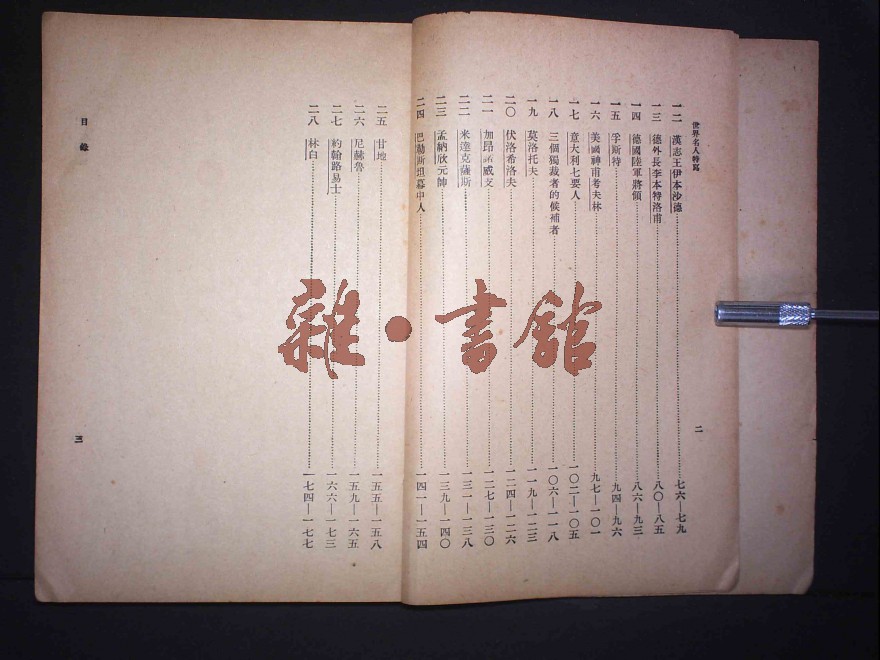 世界名人特寫
二
一二 漢志王伊本沙德 七六—七九
一三 德外長李本特洛甫 八〇—八五
一四 德國陸軍將領 八六—九三
一五 孚斯特 九四—九六
一六 美國神甫考夫林 九七—一〇一
一七 意大利七要人 一〇二—一〇五
一八 三個獨裁者的候補者 一〇六—一一八
一九 莫洛托夫 一一九—一二三
二〇 伏洛希洛夫 一二四—一二六
二一 加昂諾威支 一二七—一三〇
二二 米達克薩斯 一三一—一三八
二三 孟納欣元帥 一三九—一四〇
二四 巴勒斯坦幕中人 一四一—一五四
二五 甘地 一五五—一五八
二六 尼赫魯 一五九—一六五
二七 約翰路易士 一六六—一七三
二八 林白 一七四—一七七
目錄
三
雜·書館